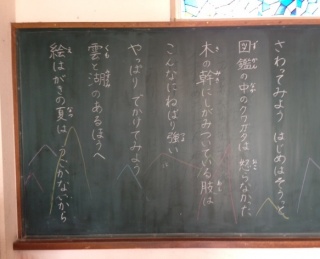 さわってみよう はじめはそうっと
図鑑の中のクワガタは 怒らなかった
木の幹にしがみついている肢は
こんなにねばり強い
やっぱり でかけてみよう
雲と湖のあるほうへ
絵はがきの夏は うごかないから